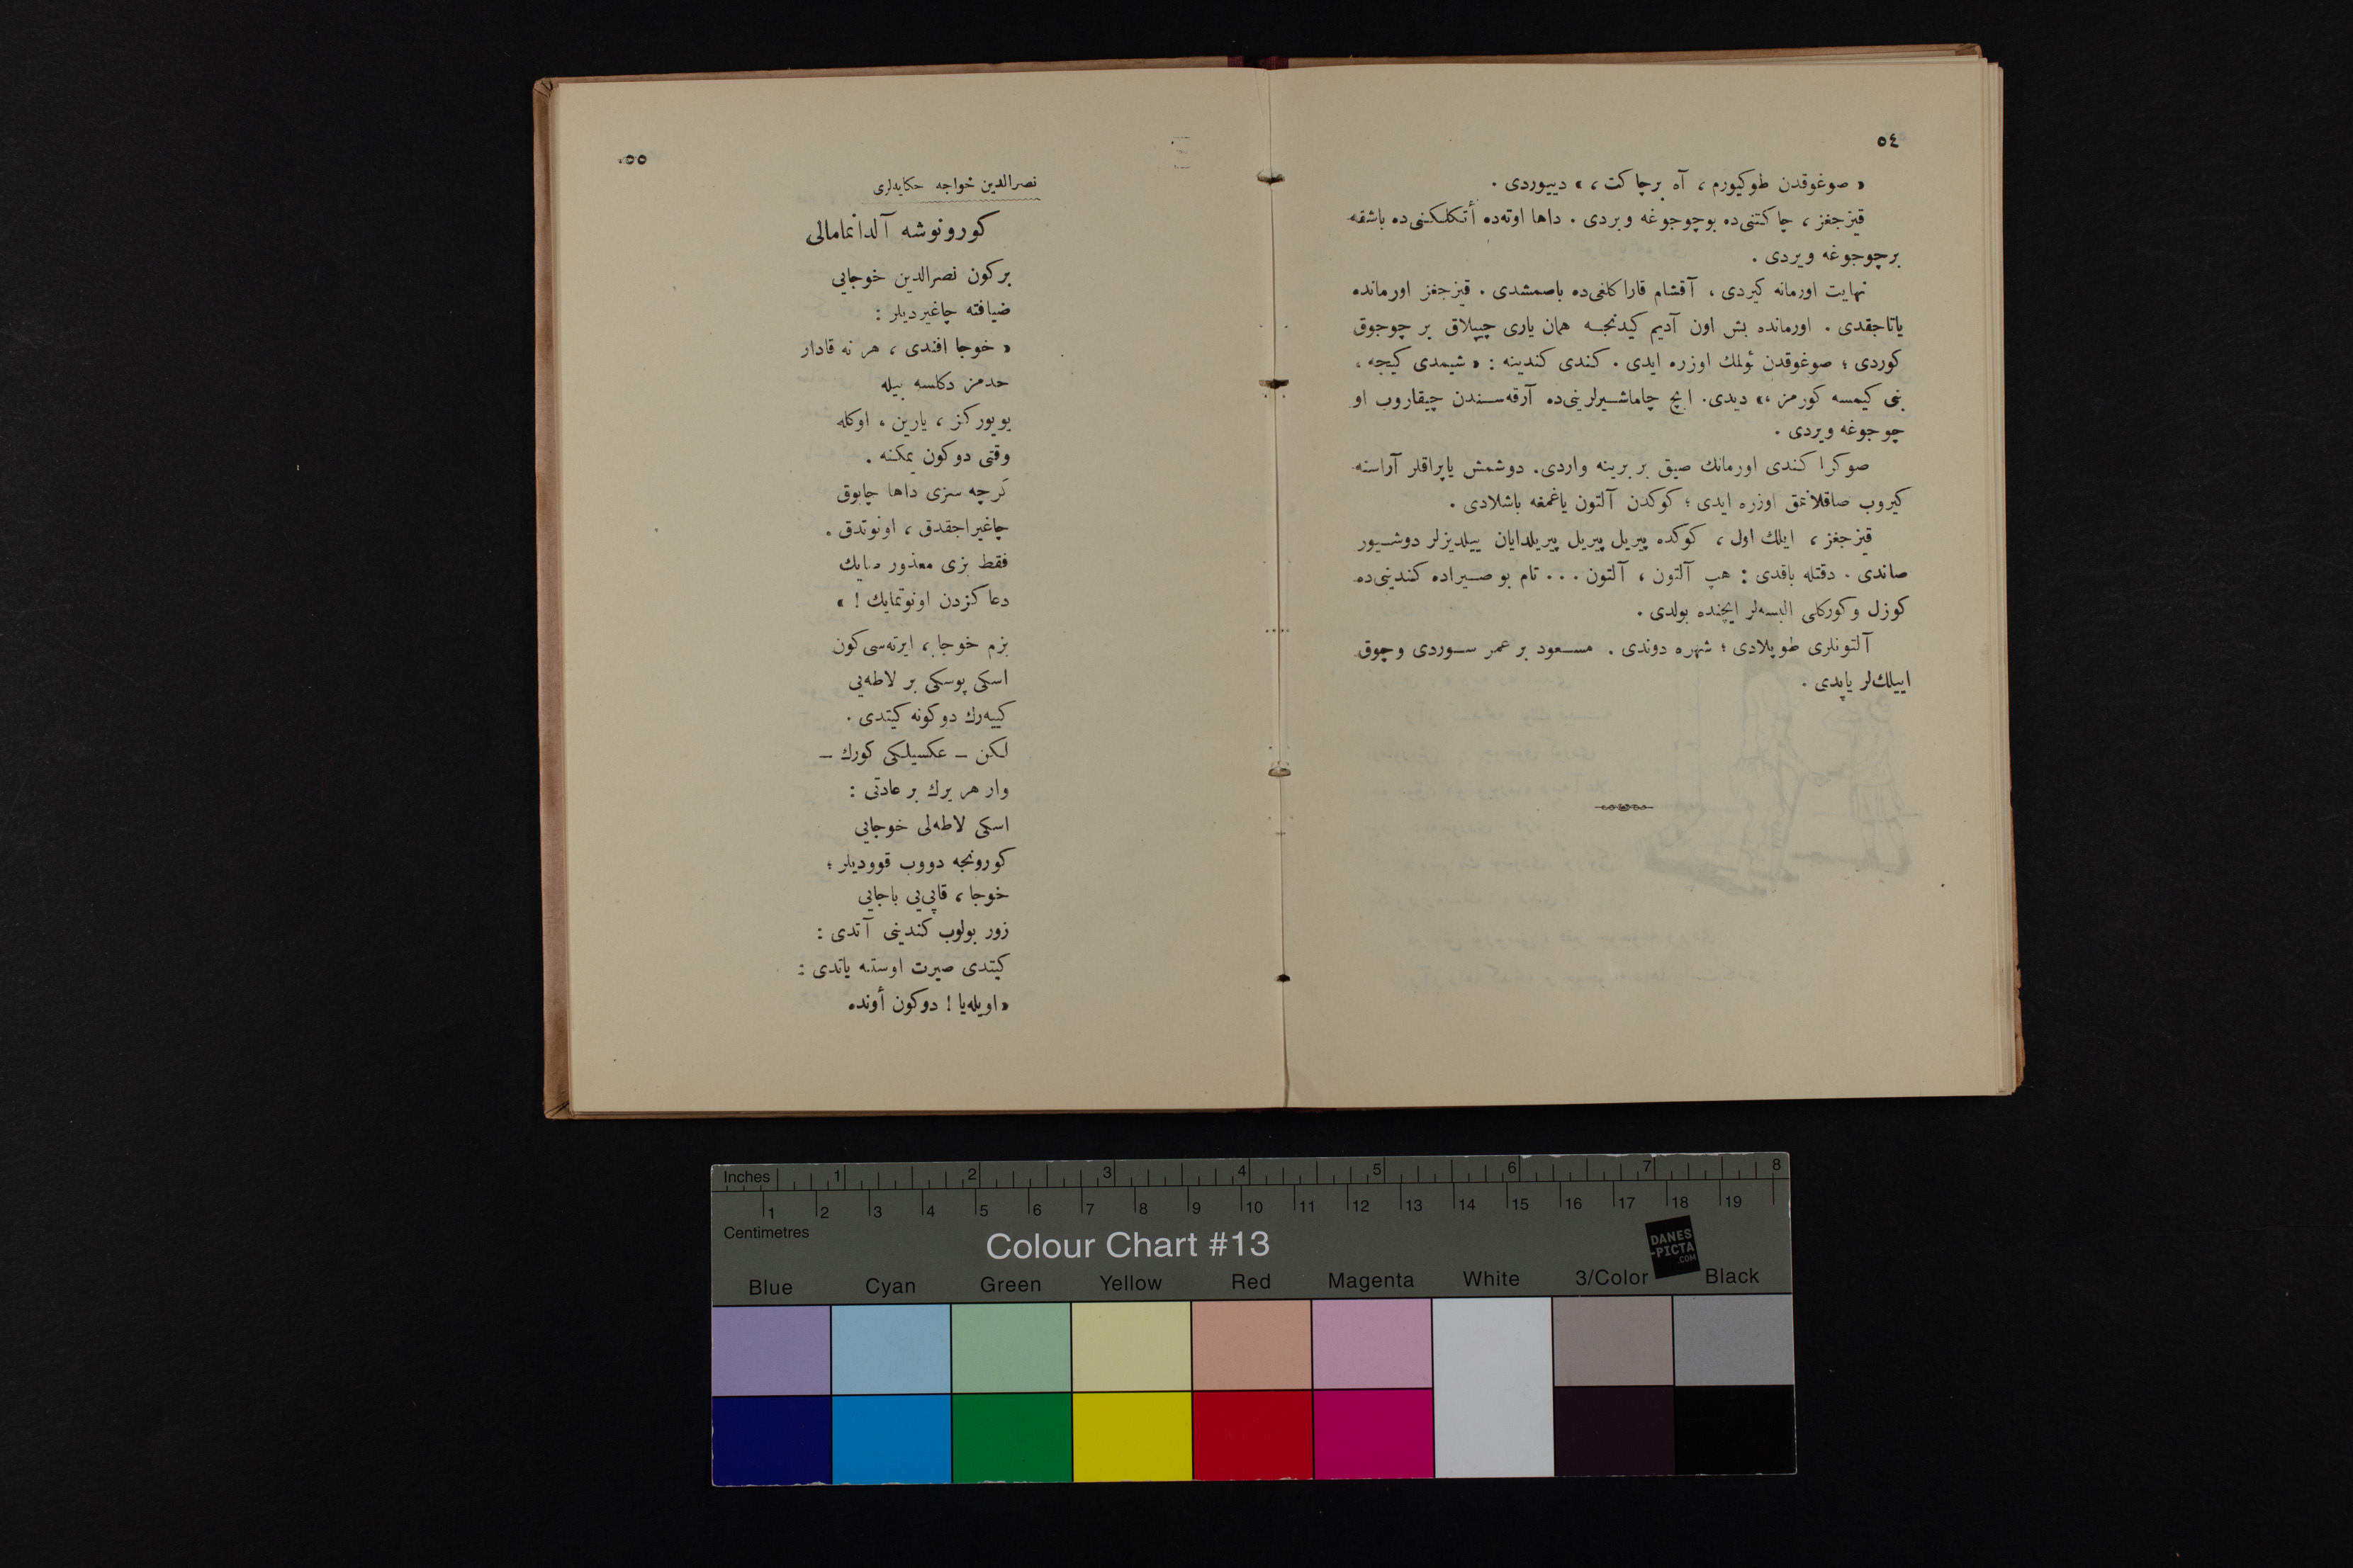 ٥٤
« صوغوقدن طوكيورم ، آه برچاكت ، » دييوردی .
قيزجغز ، چاكتنی‌ده بوچوجوغه ويردی . داها اوته‌ده أتكلكنی‌ده باشقه
برچوجوغه ويردی .
نهايت اورمانه كيردی ، آقشام قاراكلغی‌ده باصمشدی . قيزجغز اورمانده
ياتاجقدی . اورمانده بش اون آديم كيدنجه همان ياری چيپلاق بر چوجوق
كوردی ؛ صوغوقدن ئولمك اوزره ايدی . كندی كندينه : « شيمدی كيجه ،
بنی كيمسه كورمز ،» ديدی. ايچ چاماشيرلرينی‌ده آرقه‌سندن چيقاروب او
چوجوغه ويردی .
صوكرا كندی اورمانك صيق بر يرينه واردی. دوشمش ياپراقلر آراسنه
كيروب صاقلانمق اوزره ايدی ؛ كوكدن آلتون ياغمغه باشلادی .
قيزجغز ، ايلك اول ، كوكده پيريل پيريل پيريلدايان ييلديزلر دوشيور
صاندی . دقتله باقدی : هپ آلتون ، آلتون ... تام بو صيراده كندينی‌ده
كوزل وكوركلی البسه‌لر ايچنده بولدی .
آلتونلری طوپلادی ؛ شهره دوندی . مسعود بر عمر سوردی وچوق
اييلك‌لر ياپدی .
٥٥
نصرالدين خواجه حكايه‌لری
كورونوشه آلدانمامالی
بركون نصرالدين خوجايی
ضيافته چاغيرديلر :
« خوجا افندی ، هر نه قادار
حدمز دكلسه بيله
يويوركز ، يارين ، اوكله
وقتی دوكون يمكنه .
كرچه سزی داها چابوق
چاغيراجقدق ، اونوتدق .
فقط بزی معذور صايك
دعاكزدن اونوتمايك ! »
بزم خوجا ، ايرته‌سی كون
اسكی پوسكی بر لاطه‌يی
كييه‌رك دوكونه كيتدی .
لكن – عكسيلكی كورك –
وار هر يرك بر عادتی :
اسكی لاطه‌لی خوجايی
كورونجه دووب قووديلر ؛
خوجا ، قاپی‌يی باجايی
زور بولوب كندينی آتدی :
كيتدی صيرت اوستنه ياتدی :
« اويله‌يا ! دوكون أونده
Inches 1 2 3 4 5 6 7 8
1 2 3 4 5 6 7 8 9 10 11 12 13 14 15 16 17 18 19
Centimetres
Colour Chart #13
DANES
-PICTA
.COM
Blue Cyan Green Yellow Red Magenta White 3/Color Black